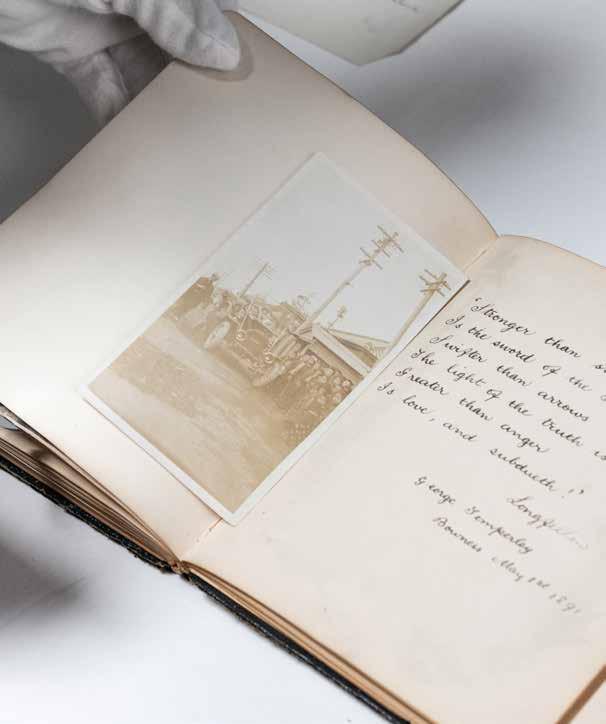 'Stronger than
Is the sword of the
Swifter than arrows
The light of the truth is
Greater than anger
Is love, and subdueth!'
Longfellow
George Temperley
Bowness May 1st 1891